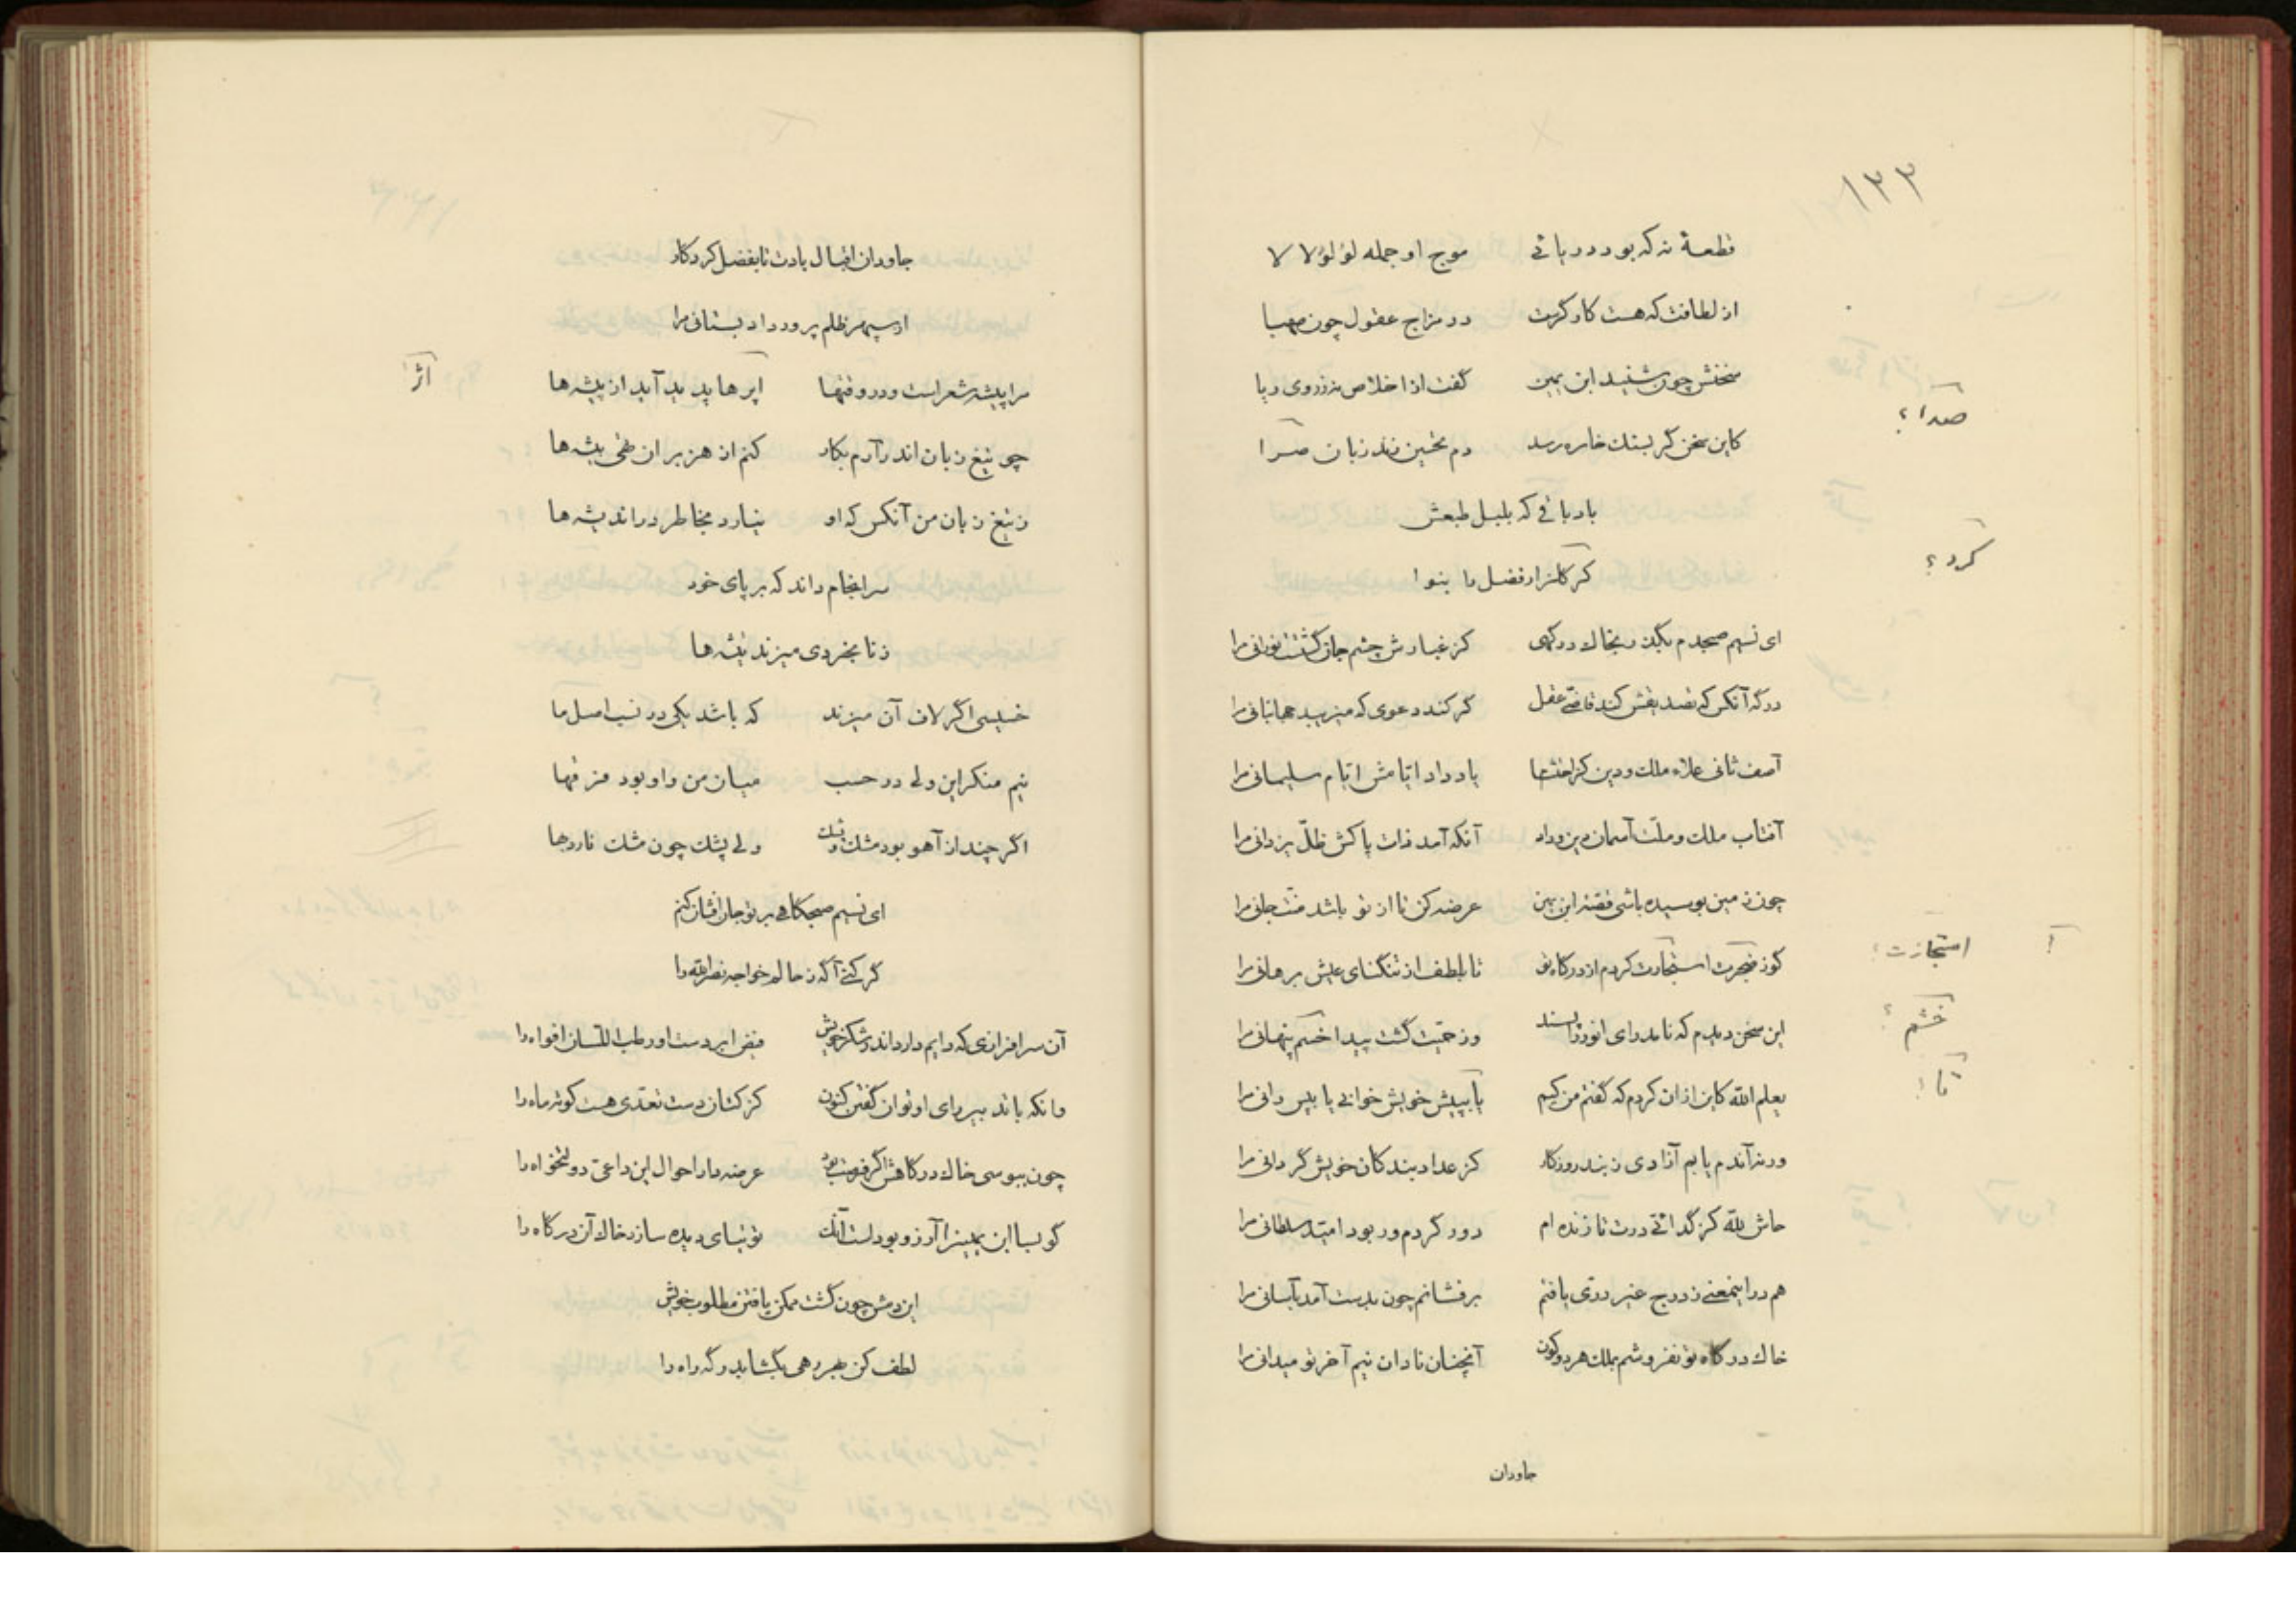 ۱۳۳
قطعهٔ نه که بود دریائی موج او جمله لؤلؤ لالا
از لطافت که هست کارگرت در مزاج عقول چون صهبا
سخنش چون شنید ابن یمین گفت از اخلاص نه ز روی ریا
کاین سخن گر بسنک خاره رسد دم تحسین زند زبان صرا
صدا؟
باد باقی که بلبل طبعش
کر کلزار فضل ما بنوا
کرد؟
ای نسیم صبحدم بگذر بخاک درگهی کز غبارش چشم جان گشتت نورانی مرا
درگه آنکس که تصدیقش کند قاضی عقل گر کند دعوی که میزیبد جهانبانی مرا
آصف ثانی علاء ملک و دین کز یاد داد ایامش ایام سلیمانی مرا
آفتاب ملک و ملت آسمان دین و داد آنکه آمد ذات پاکش ظلّ یزدانی مرا
چون زمین بوسیده باشی قصّه ابن یمین عرضه کن تا از تو باشد منّت جانی مرا
کوز ضجرت استجارت کردم از درگاه تو تا بلطف از تنگنای عیش برهانی مرا
استجازت؛
این سخن دیدم که نامد رای انور را پسند وز حمیّت گشت پیدا خسم پنهانی مرا
خشم؟
یعلم الله کاین از آن کردم که گفتم من کیم یا بپیش خویش خوانی یا بپس رانی مرا
تا؛
ورنه آندم یابم آزادی ز بند روزکار کز عداد بندکان خویش گردانی مرا
حاش لله کز گدائی درت تا زنده ام دور گردم ور بود امید سلطانی مرا
هم در اینمعنی ز درج غیر درّی یافتم برفشانم چون بدست آمد بآسانی مرا
خاک درگاه تو نفروشم بملک هر دو کون آنچنان نادان نیم آخر تو میدانی مرا
جاودان
جاودان اقبال بادت تا بفضل کردکار
از سپهر ظلم پرور داد بستانی مرا
مرا پیشه شعر است و در وقتها اپرها پدید آید از پیشه ها
اثر
چو تیغ زبان اندر آرم بکار کنم از هزبران تهی بیشه ها
ز تیغ زبان من آنکس که او نیارد بخاطر در اندیشه ها
سرانجام داند که بر پای خود
ز نابخردی میزند تیشه ها
خسیسی اگر لاف آن میزند که باشد یکی در نسب اصل ما
نیم منکر این ولی در حسب میان من و او بود فرقها
اگر چند از آهو بود مشک و پشک ولی پشک چون مشک نارد بها
ای نسیم صبحگاهی بر تو جان افشان کنم
گر کنی آگه ز حالم خواجه نصرالله را
آن سرافرازی که دایم دارد اندر شکر خویش فیض ابر دست او رطب اللسان افواه را
وانکه باند بیر رای او توان گفتن کنون کز کتان دست تعدّی هست کوته ماه را
چون ببوسی خاک درگاهش اگر فرصت بود عرضه دار احوال این داعی دولتخواه را
گو بسا ابن یمین را آرزو بود است آنک توتیای دیده سازد خاک آن درگاه را
این دمش چون گشت ممکن یافتن مطلوب خویش
لطف کن بهر رهی بگشاید رگه راه را